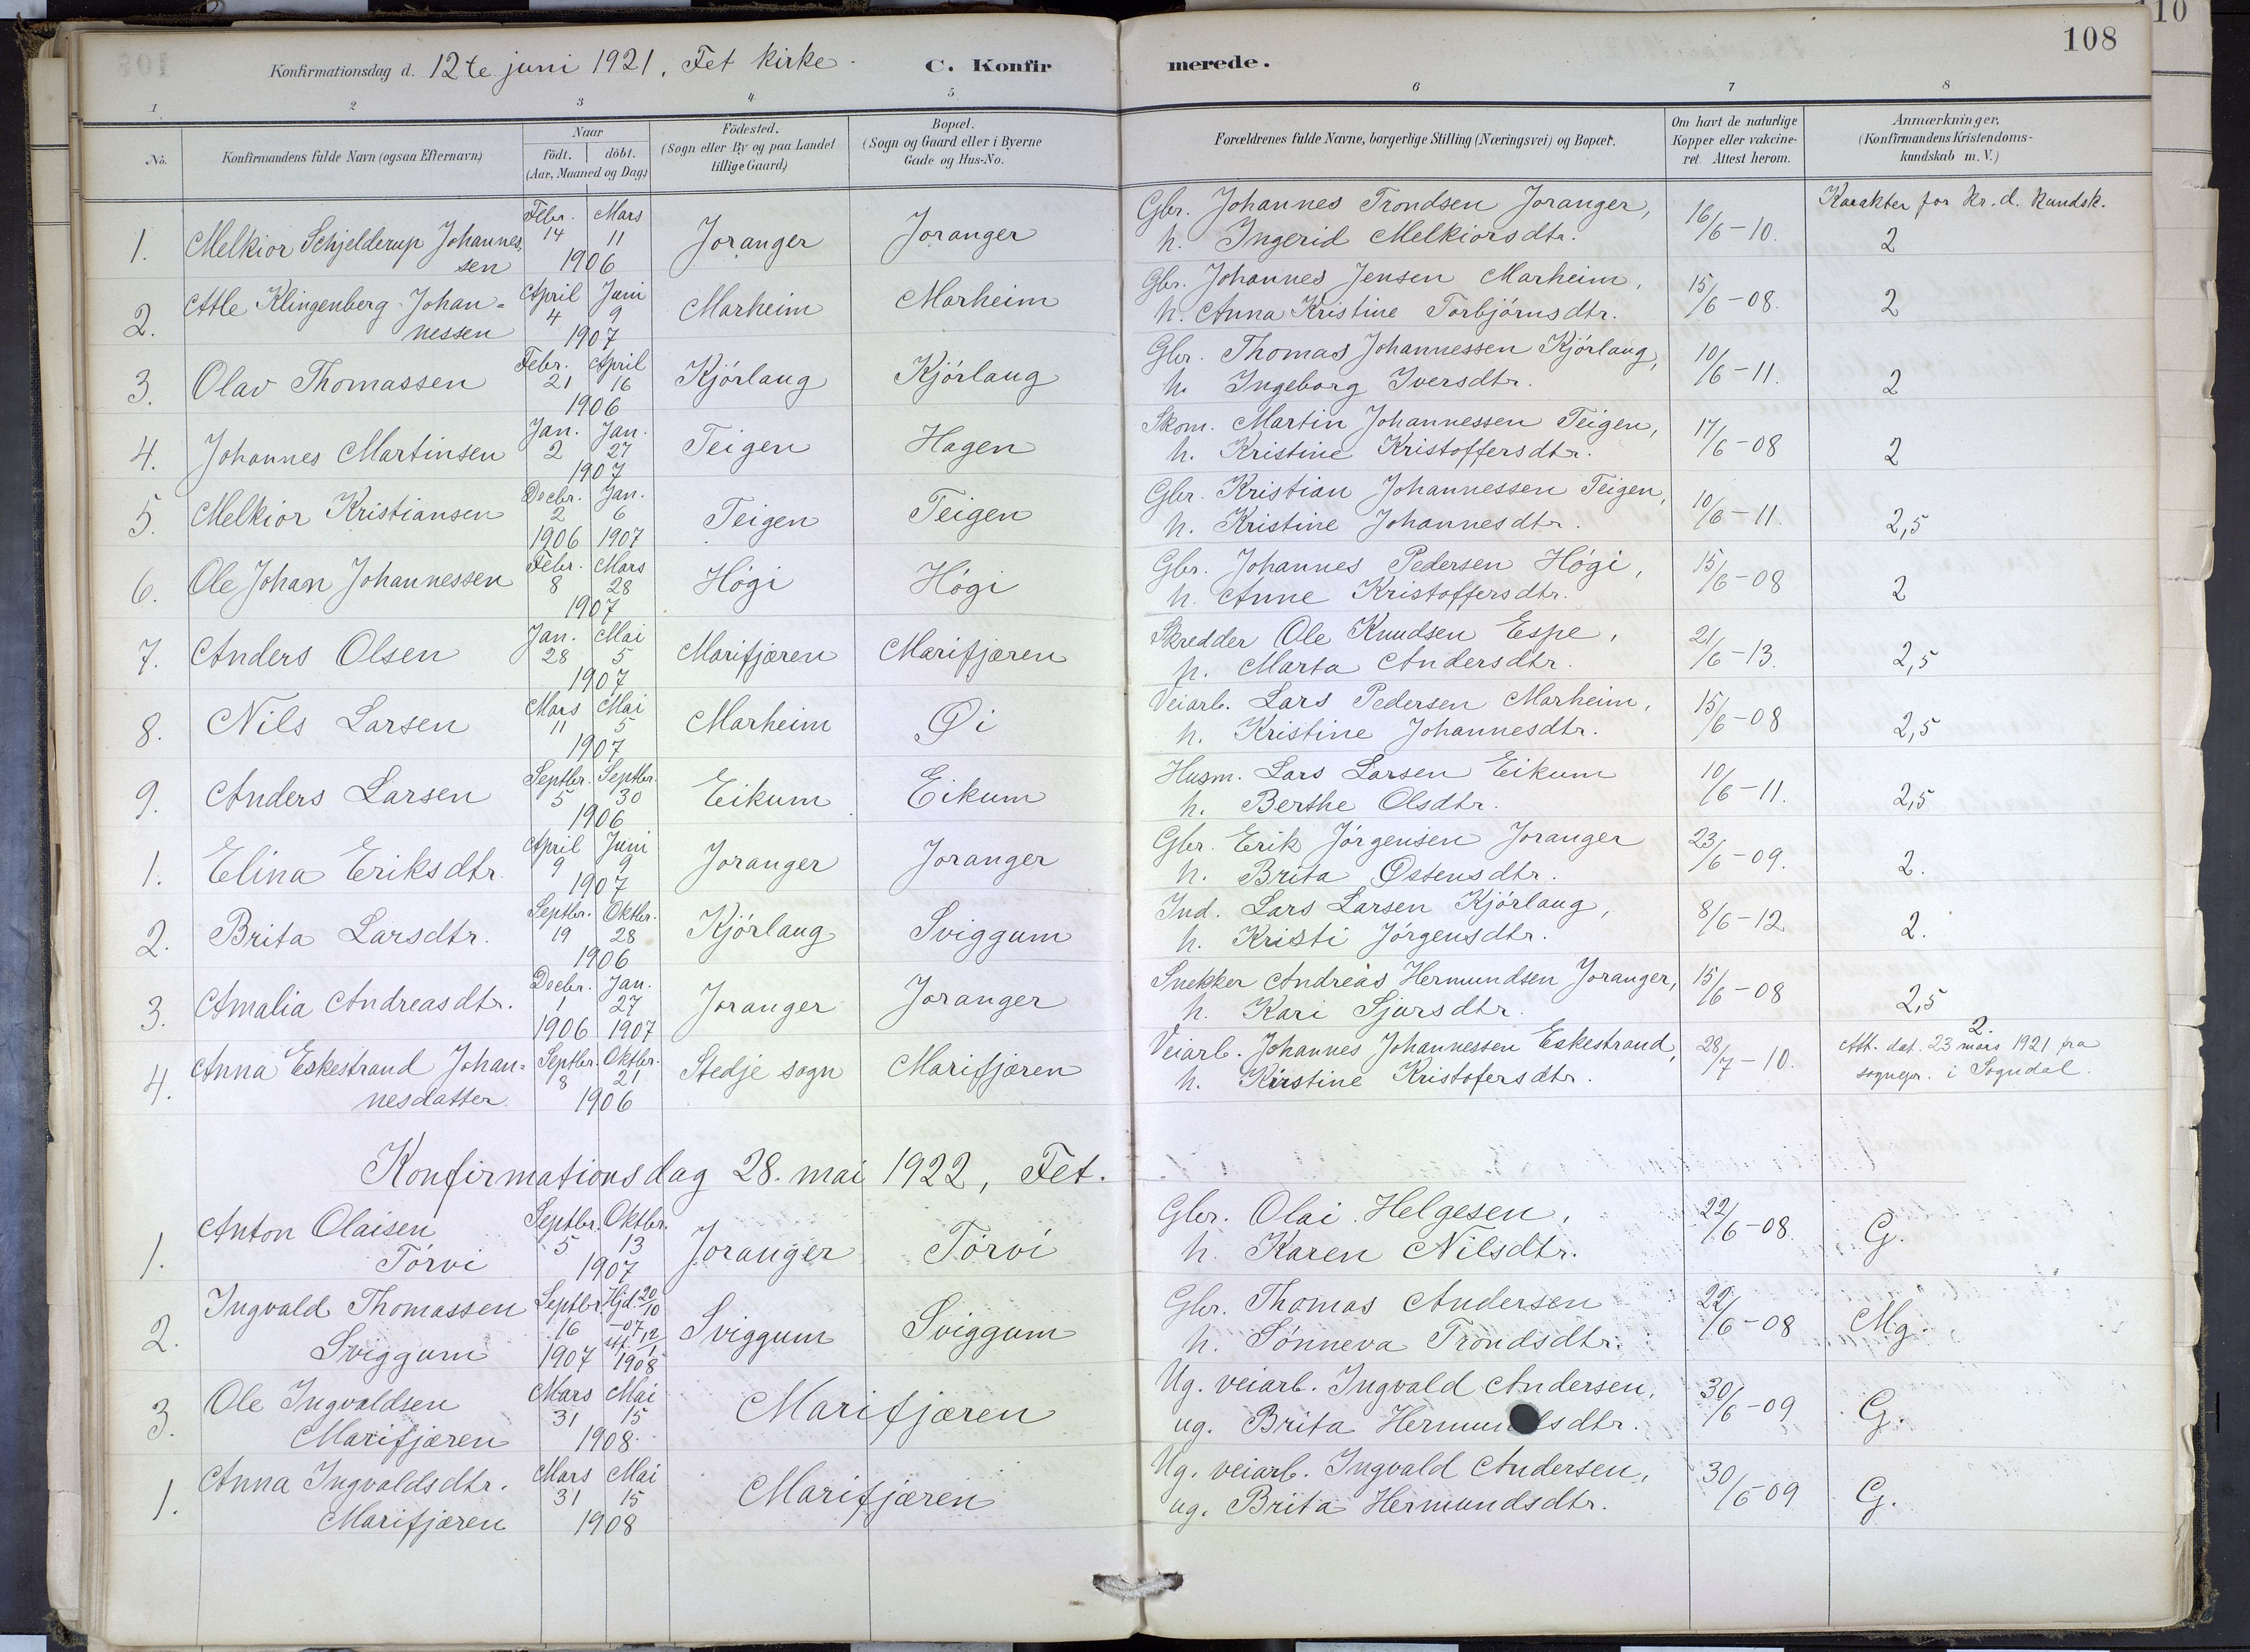 110
108
Konfirmationsdag d. 12te juni 1921. Fet kirke. C. Konfirmerede.
1 2 3 4 5 6 7 8
No. Konfirmandens fulde Navn (ogsaa Efternavn) Naar födt. döbt. (Aar, Maaned og Dag) Födested. (Sogn eller By og paa Landet tillige Gaard) Bopæl. (Sogn og Gaard eller i Byerne Gade og Hus-No. Forældrenes fulde Navne, borgerlige Stilling (Næringsvei) og Bopæl. Om havt de naturlige Kopper eller vakcineret. Attest herom. Anmærkninger, (Konfirmandens Kristendomskundskab m. V.)
Karakter for kr.d. kundsk.
1. Melkior Schjelderup Johannessen Febr. 14 Mars 11 1906 Joranger Joranger Gbr. Johannes Trondsen Joranger, 16/6-10. 2
h. Ingerid Melkiorsdtr.
2. Atle Klingenberg Johan= April 4 Juni 9 1907 Marheim Marheim Gbr. Johannes Jensen Marheim, 15/6-08. 2
nessen h. Anna Kristine Torbjörnsdtr.
3. Olav Thomassen Febr. 21 April 16 1906 Kjörlaug Kjörlaug Gbr. Thomas Johannessen Kjörlaug, 10/6-11. 2
h. Ingeborg Iversdtr.
4. Johannes Martinsen Jan. 2 Jan. 27 1907 Teigen Hagen Skom. Martin Johannessen Teigen, 17/6-08 2
h. Kristine Kristoffersdtr.
5. Melkior Kristiansen Decbr. 2 1906 Jan. 6 1907 Teigen Teigen Gbr. Kristian Johannessen Teigen, 10/6-11. 2,5
h. Kristine Johannesdtr.
6. Ole Johan Johannessen Febr. 8 Mars 28 1907 Högi Högi Gbr. Johannes Pedersen Högi, 15/6-08 2
h. Anne Kristoffersdtr.
7. Anders Olsen Jan. 28 Mai 5 1907 Marifjæren Marifjæren Skredder Ole Knudsen Espe, 21/6-13. 2,5
h. Marta Andersdtr.
8. Nils Larsen Mars 11 Mai 5 1907 Marheim Øi Veiarb. Lars Pedersen Marheim, 15/6-08 2,5
h. Kristine Johannesdtr.
9. Anders Larsen Septbr. 5 Septbr. 30 1906 Eikum Eikum Husm. Lars Larsen Eikum 10/6-11. 2,5
h. Berthe Olsdtr.
1. Elina Eriksdtr. April 9 Juni 9 1907 Joranger Joranger Gbr. Erik Jörgensen Joranger 23/6-09. 2.
h. Brita Østensdtr.
2. Brita Larsdtr. Septbr. 19 Oktbr. 28 1906 Kjörlaug Sviggum Ind. Lars Larsen Kjörlaug, 8/6-12 2.
h. Kristi Jörgensdtr.
3. Amalia Andreasdtr. Decbr. 1 1906 Jan. 27 1907 Joranger Joranger Snekker Andreas Hermundsen Joranger, 15/6-08 2,5
h. Kari Sjursdtr.
4. Anna Eskestrand Johan= Septbr. 8 Oktbr. 21 1906 Stedje sogn Marifjæren Veiarb. Johannes Johannessen Eskestrand, 28/7-10. 2. Att. dat. 23 mars 1921 fra
nesdatter h. Kirstine Kristofersdtr. sognepr. i Sogndal.
Konfirmationsdag 28. mai 1922, Fet.
1. Anton Olaisen Septbr. 5 Oktbr. 13 1907 Joranger Törvi Gbr. Olai Helgesen, 22/6-08. G.
Törvi h. Karen Nilsdtr.
2. Ingvald Thomassen Septbr. 16 1907 Hjd. 20/10 -07 12/1 1908 Sviggum Sviggum Gbr. Thomas Andersen 22/6-08 Mg.
Sviggum h. Sönneva Trondsdtr.
3. Ole Ingvaldsen Mars 31 Mai 15 1908. Marifjæren Ug. veiarb. Ingvald Andersen, 30/6-09 G.
Marifjæren ug. Brita Hermundsdtr.
1. Anna Ingvaldsdtr. Mars 31 Mai 15 1908 Marifjæren Ug. veiarb. Ingvald Andersen, 30/6-09 G.
Marifjæren ug. Brita Hermundsdtr.